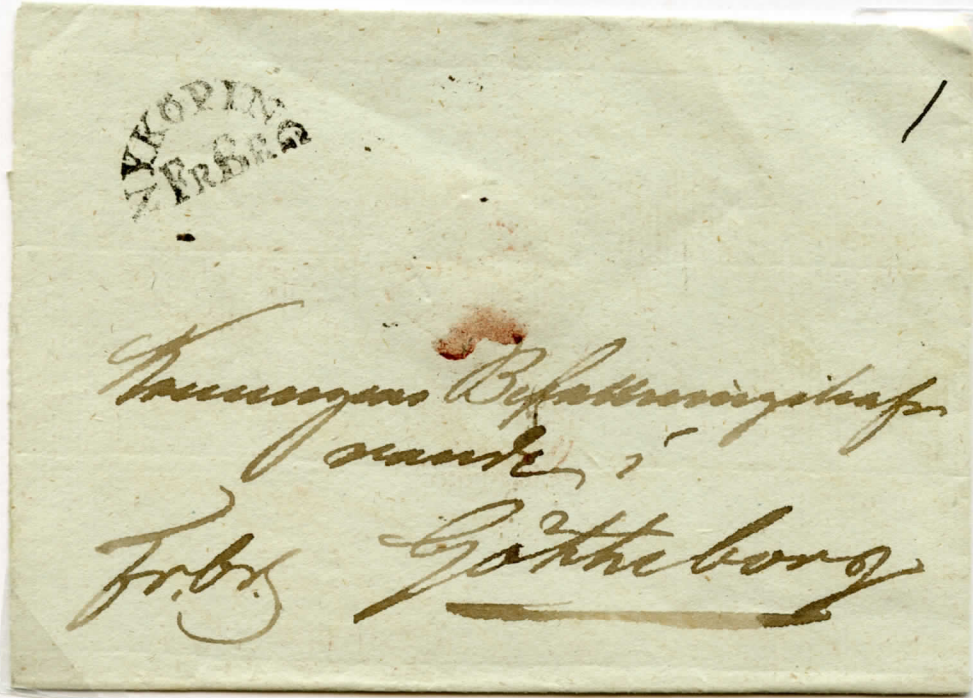 NYKÖPING
FRBRF
Konungens Befallningshaf-
vande i
Fr.br. Götheborg